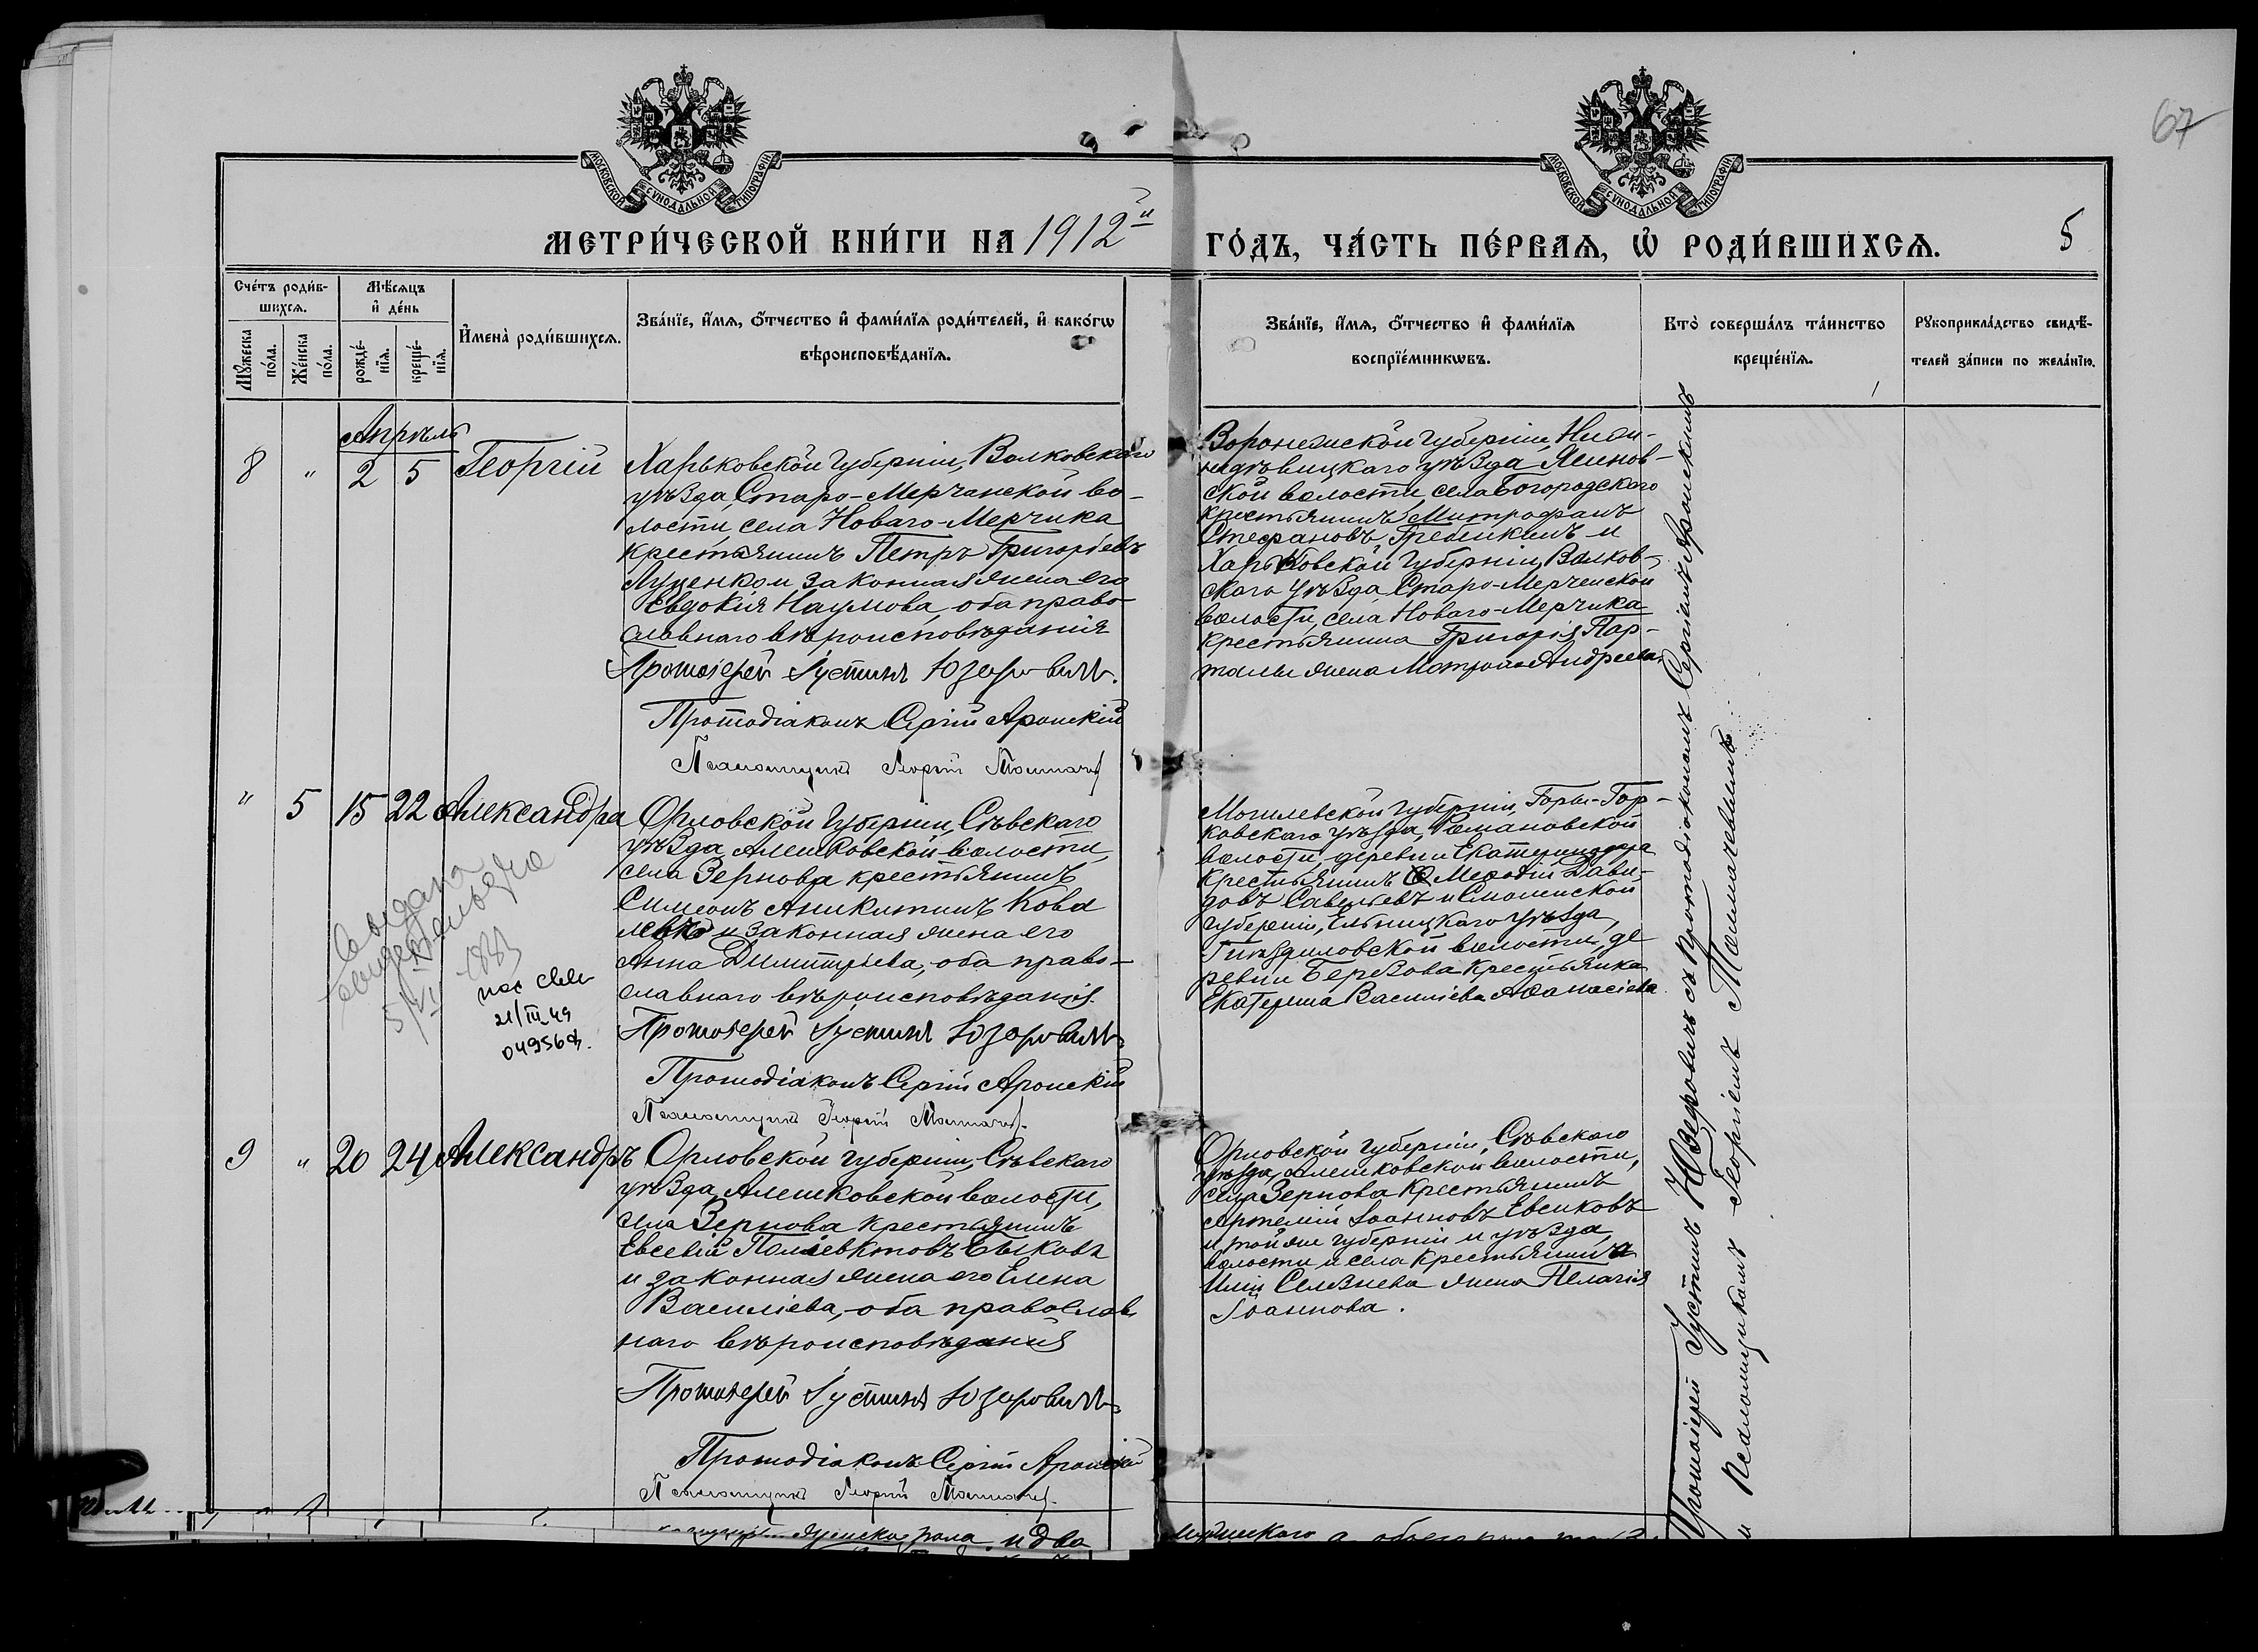 67
МОСКОВСКОЙ СѴНОДАЛЬНОЙ ТИПОГРАФІИ
МОСКОВСКОЙ СѴНОДАЛЬНОЙ ТИПОГРАФІИ
МЕТРИ́ЧЕСКОЙ КНИ́ГИ НА 1912й ГО́ДЪ, ЧА́СТЬ ПЕ́РВАѦ, Ѡ҆ РОДИ́ВШИХСѦ.
5
Сче́тъ роди́в-
шихсѧ.
Мꙋ́жеска по́ла.
Же́нска по́ла.
Мѣ́сѧцъ
и҆ де́нь
рожде́-
нїѧ.
креще́-
нїѧ.
И҆мена̀ роди́вшихсѧ.
Зва́нїе, и҆́мѧ, ѻ҆́тчество и҆ фами́лїѧ роди́телей, и҆ како́гѡ
вѣроисповѣ́данїѧ.
Зва́нїе, и҆́мѧ, ѻ҆́тчество и҆ фами́лїѧ
воспрїе́мникѡвъ.
Кто̀ соверша́лъ та́инство
креще́нїѧ.
Рꙋкоприкла́дство свидѣ́-
телей за́писи по жела́нїю.
Апрѣль
8 " 2 5 Георгій
Харьковской губерніи, Валковскаго
уѣзда, Старо-Мерчанской во-
лости, села Новаго-Мерчика
крестьянинъ Петръ Григорьевъ
Луценко и законная жена его
Евдокія Наумова, оба право-
славнаго вѣроисповѣданія
Протоіерей Іустинъ Юзефовичъ.
Протодіаконъ Сергій Аронскій
Псаломщикъ Георгій
Воронежской губерніи, Нижне-
дѣвицкаго уѣзда Ясинов-
ской волости, села Богородскаго
крестьянинъ Митрофанъ
Стефановъ Гребенкинъ и
Харьковской губерніи, Валков-
скаго уѣзда, Старо-Мерчанской
волости, села Новаго-Мерчика
крестьянина Григорія Пар-
талы жена Матрона Андреева.
" 5 15 22 Александра
Орловской губерніи, Сѣвскаго
уѣзда, Алешковской волости,
села Зернова крестьянинъ
Симеонъ Аникитинъ Кова
левъ и законная жена его
Анна Димитріева, оба право-
славнаго вѣроисповѣданія.
Протоіерей Іустинъ Юзефовичъ
Протодіаконъ Сергій Аронскій
Псаломщикъ Георгій
Выдана
свидетельство
21/III 49
Могилевской губерніи, Горы-Гор-
ковскаго уѣзда, Романовской
волости, деревни Екатеринодара
крестьянинъ Меѳодій Дави-
довъ Савельевъ и Смоленской
губерніи, Ельницкаго уѣзда,
волости, де
ревни Березова крестьянка
Екатерина Василіева Аѳанасіева
9 " 20 24 Александръ
Орловской губерніи, Сѣвскаго
уѣзда, Алешковской волости,
села Зернова крестьянинъ
Евсевій Поліевктовъ Быковъ
и законная жена его Елена
Василіева, оба православ
наго вѣроисповѣданія
Протоіерей Іустинъ Юзефовичъ
Протодіаконъ Сергій Аронскій
Псаломщикъ Георгій
Орловской губерніи, Сѣвскаго
уѣзда, Алешковской волости,
села Зернова крестьянинъ
Артемій Іоанновъ Евсиковъ
и той же губерніи и уѣзда,
волости и села крестьянина
Иліи Селезнева жена Пелагія
Іоаннова.
Протоіерей Іустинъ Юзефовичъ съ Протодіакономъ Сергіемъ Аронскимъ
и Псаломщикомъ Георгіемъ
женска пола и два